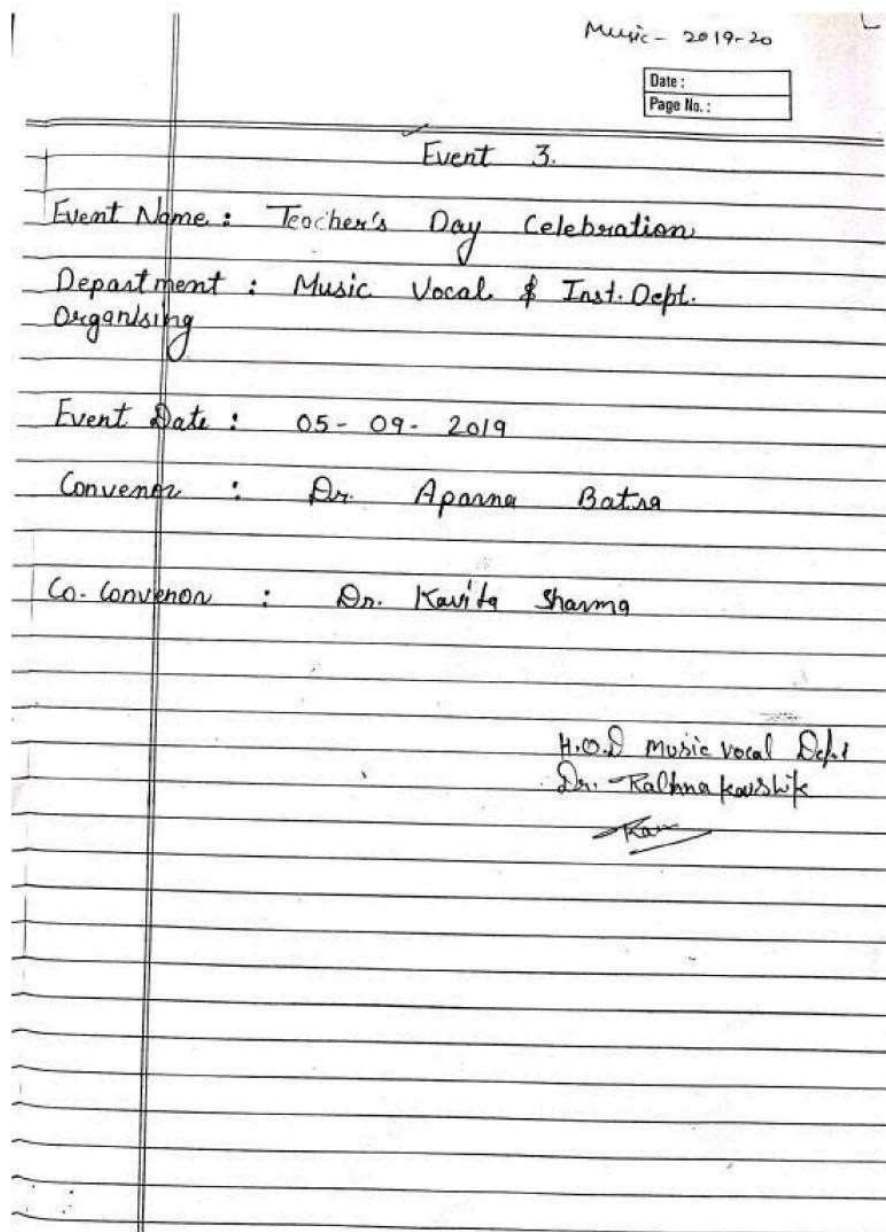 Music - 2019-20
Date :
Page No. :
Event 3.
Event Name : Teacher's Day Celebration
Department : Music Vocal & Inst. Dept.
Organising
Event Date : 05-09-2019
Convenor : Dr. Aparna Batra
Co-Convenor : Dr. Kavita Sharma
H.O.D Music Vocal Dept
Dr. Kaushik